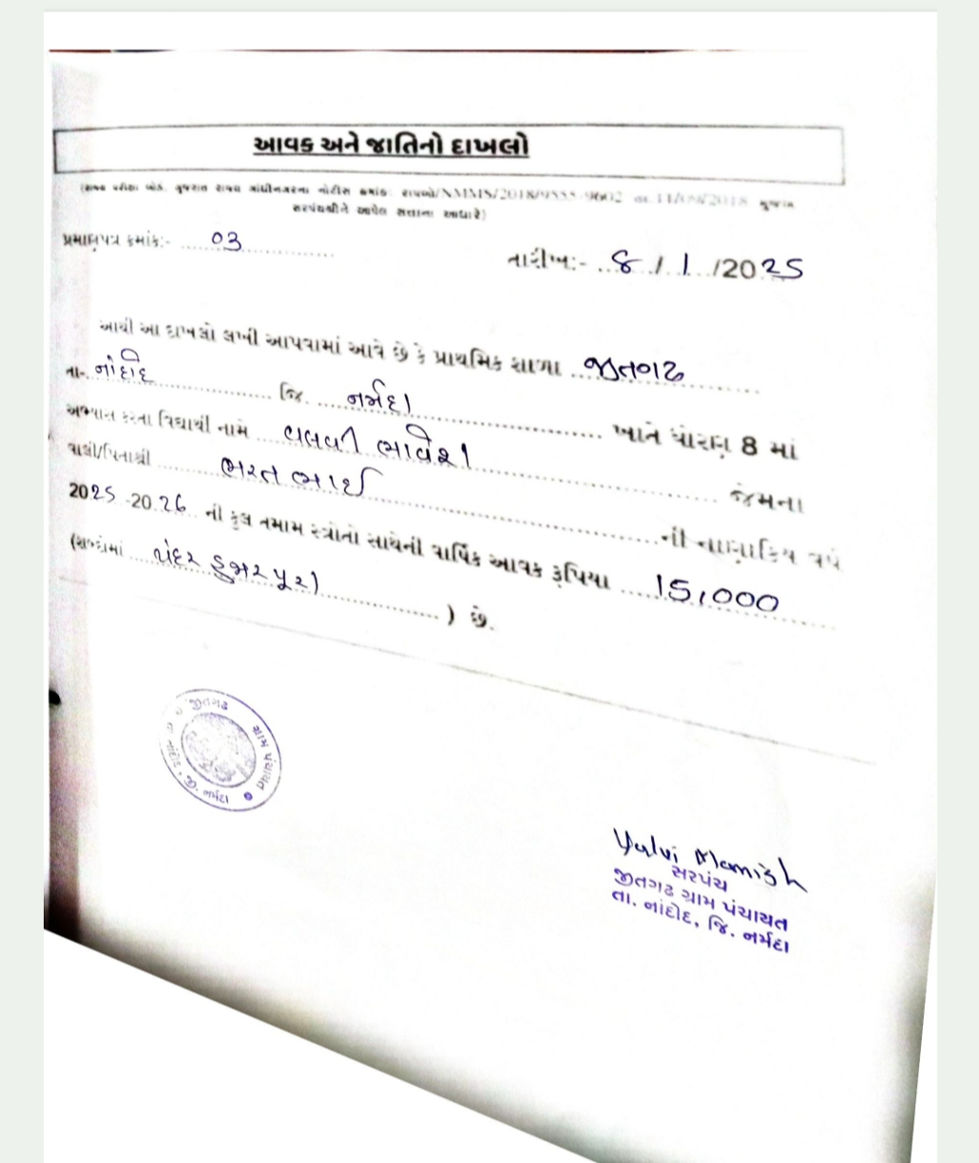 આવક અને જાતિનો દાખલો
(રાજ્ય પરીક્ષા બોર્ડ, ગુજરાત રાજ્ય ગાંધીનગરના નોટીસ ક્રમાંક રાપબો/NMMS/2018/9555-9602 તા.11/09/2018 મુજબ
સરપંચશ્રીને આપેલ સત્તાના આધારે)
પ્રમાણપત્ર ક્રમાંક:- 03
તારીખ:- 8/1/2025
આથી આ દાખલો લખી આપવામાં આવે છે કે પ્રાથમિક શાળા જીતગઢ
તા- નાંદોદ જિ. નર્મદા ખાતે ધોરણ 8 માં
અભ્યાસ કરતા વિદ્યાર્થી નામે વલવી ભાવેશ જેમના
વાલી/પિતાશ્રી ભરતભાઈ ની નાણાકિય વર્ષ
2025-2026 ની કુલ તમામ સ્ત્રોતો સાથેની વાર્ષિક આવક રૂપિયા 15,000
(શબ્દોમાં પંદર હજાર પૂરા) છે.
જીતગઢ ગ્રામ પંચાયત
તા. નાંદોદ, જિ. નર્મદા
Valvi Manish
સરપંચ
જીતગઢ ગ્રામ પંચાયત
તા. નાંદોદ, જિ. નર્મદા